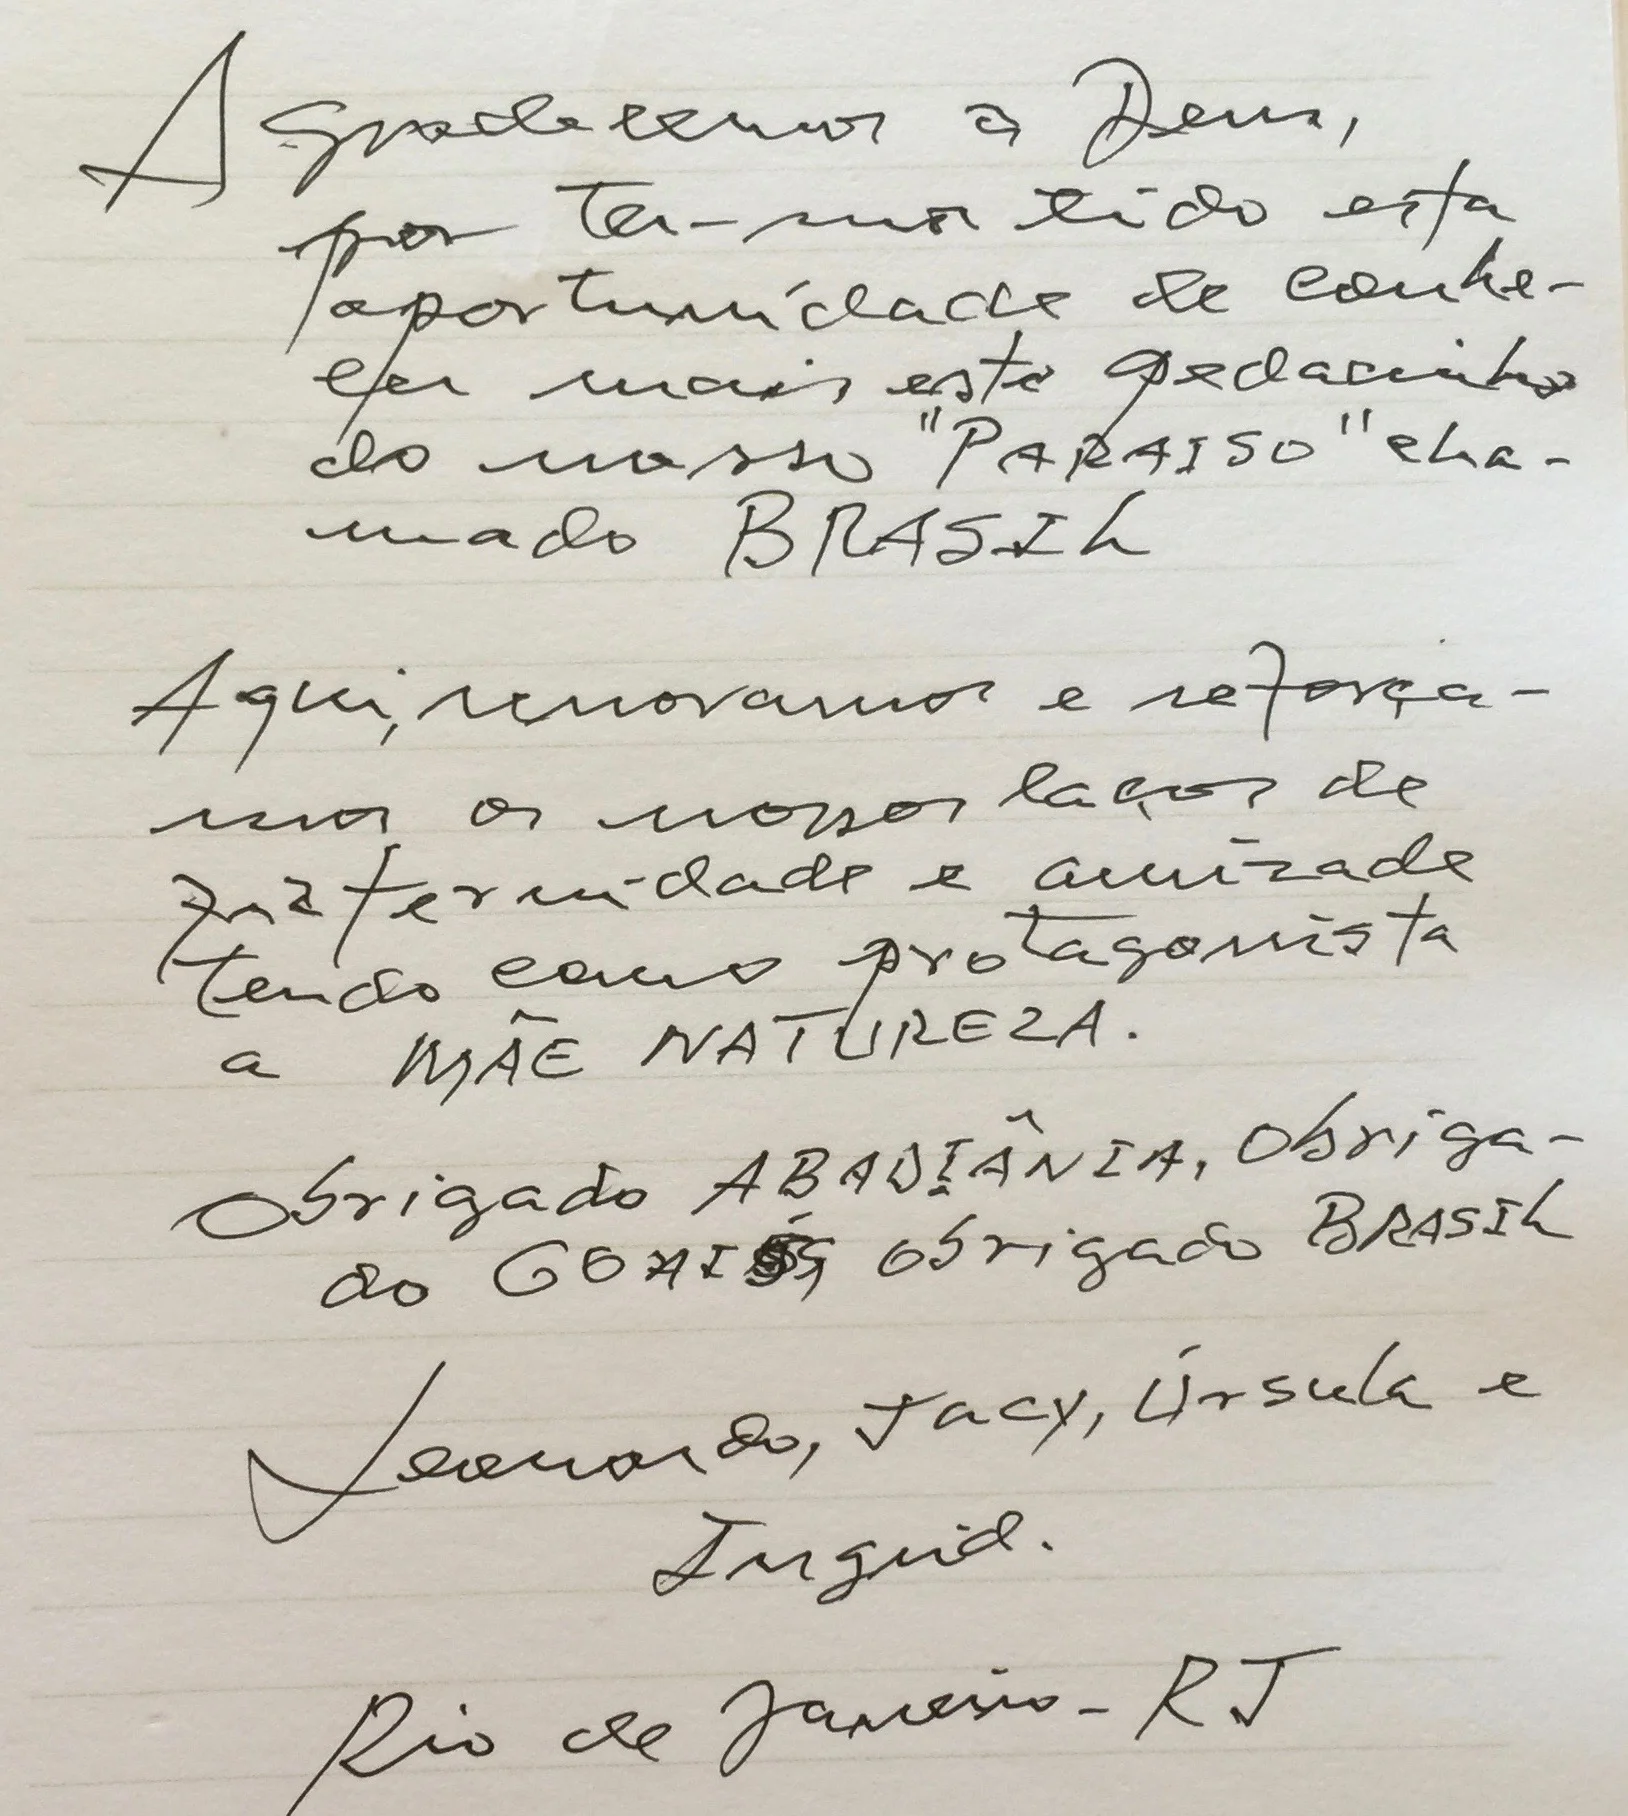 Agradecemos a Deus,
por ter-nos tido esta
oportunidade de conhe-
cer mais este pedacinho
do nosso "PARAISO" cha-
mado BRASIL
Aqui, renovamos e reforça-
mos os nossos laços de
fraternidade e amizade
tendo como protagonista
a MÃE NATUREZA.
Obrigado ABADIÂNIA, Obriga-
do GOIÁS, obrigado BRASIL
Leonardo, Jacy, Úrsula e
Ingrid.
Rio de Janeiro - RJ